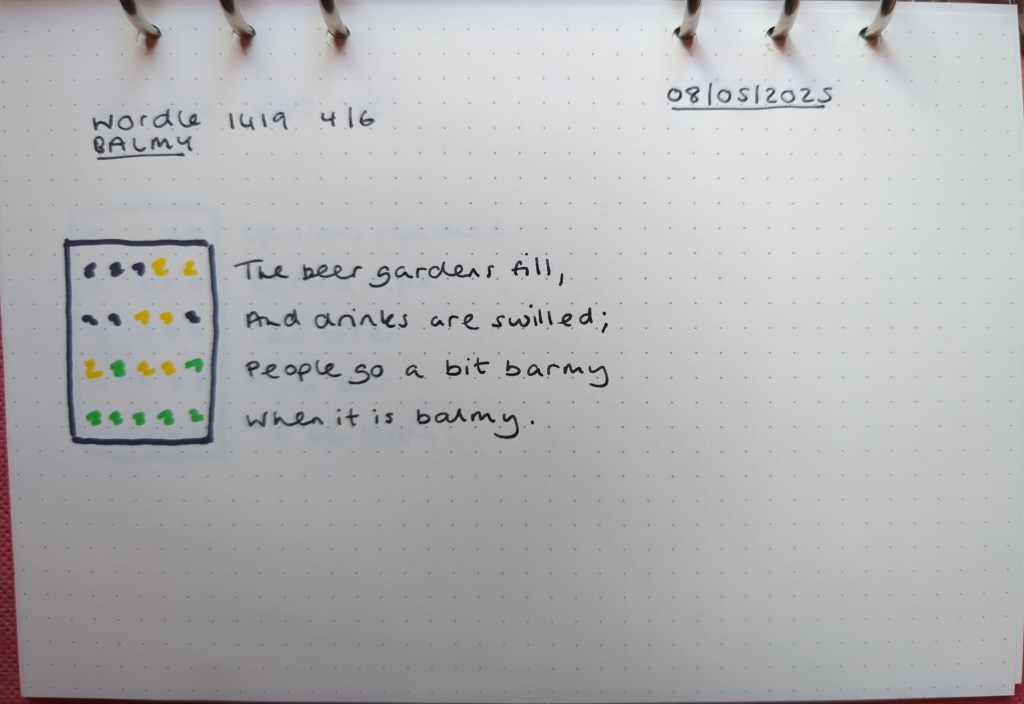 08/05/2025
Wordle 1419 4/6
BALMY
The beer gardens fill,
And drinks are swilled;
People go a bit barmy
When it is balmy.